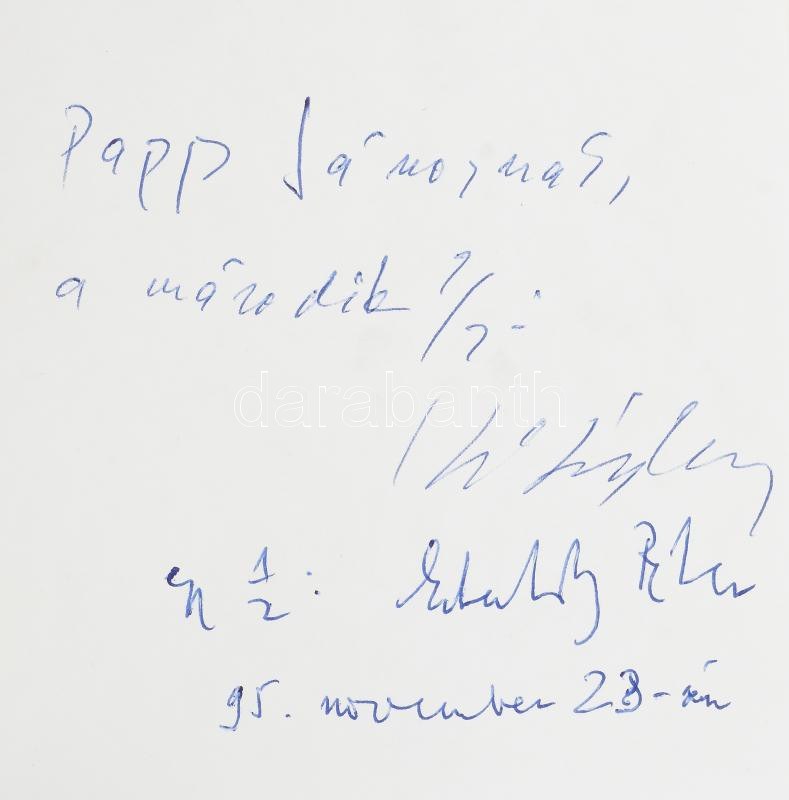 Papp Jánosnak,
a második 1/2:
darabanth
egy 1/2: Esterházy Péter
95. november 23-án